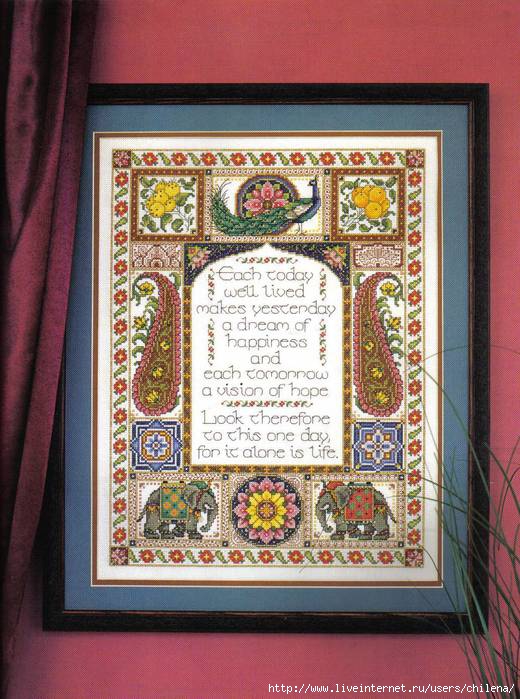 Each today
well lived
makes yesterday
a dream of
happiness
and
each tomorrow
a vision of hope
Look therefore
to this one day,
for it alone is life.
http://www.liveinternet.ru/users/chilena/